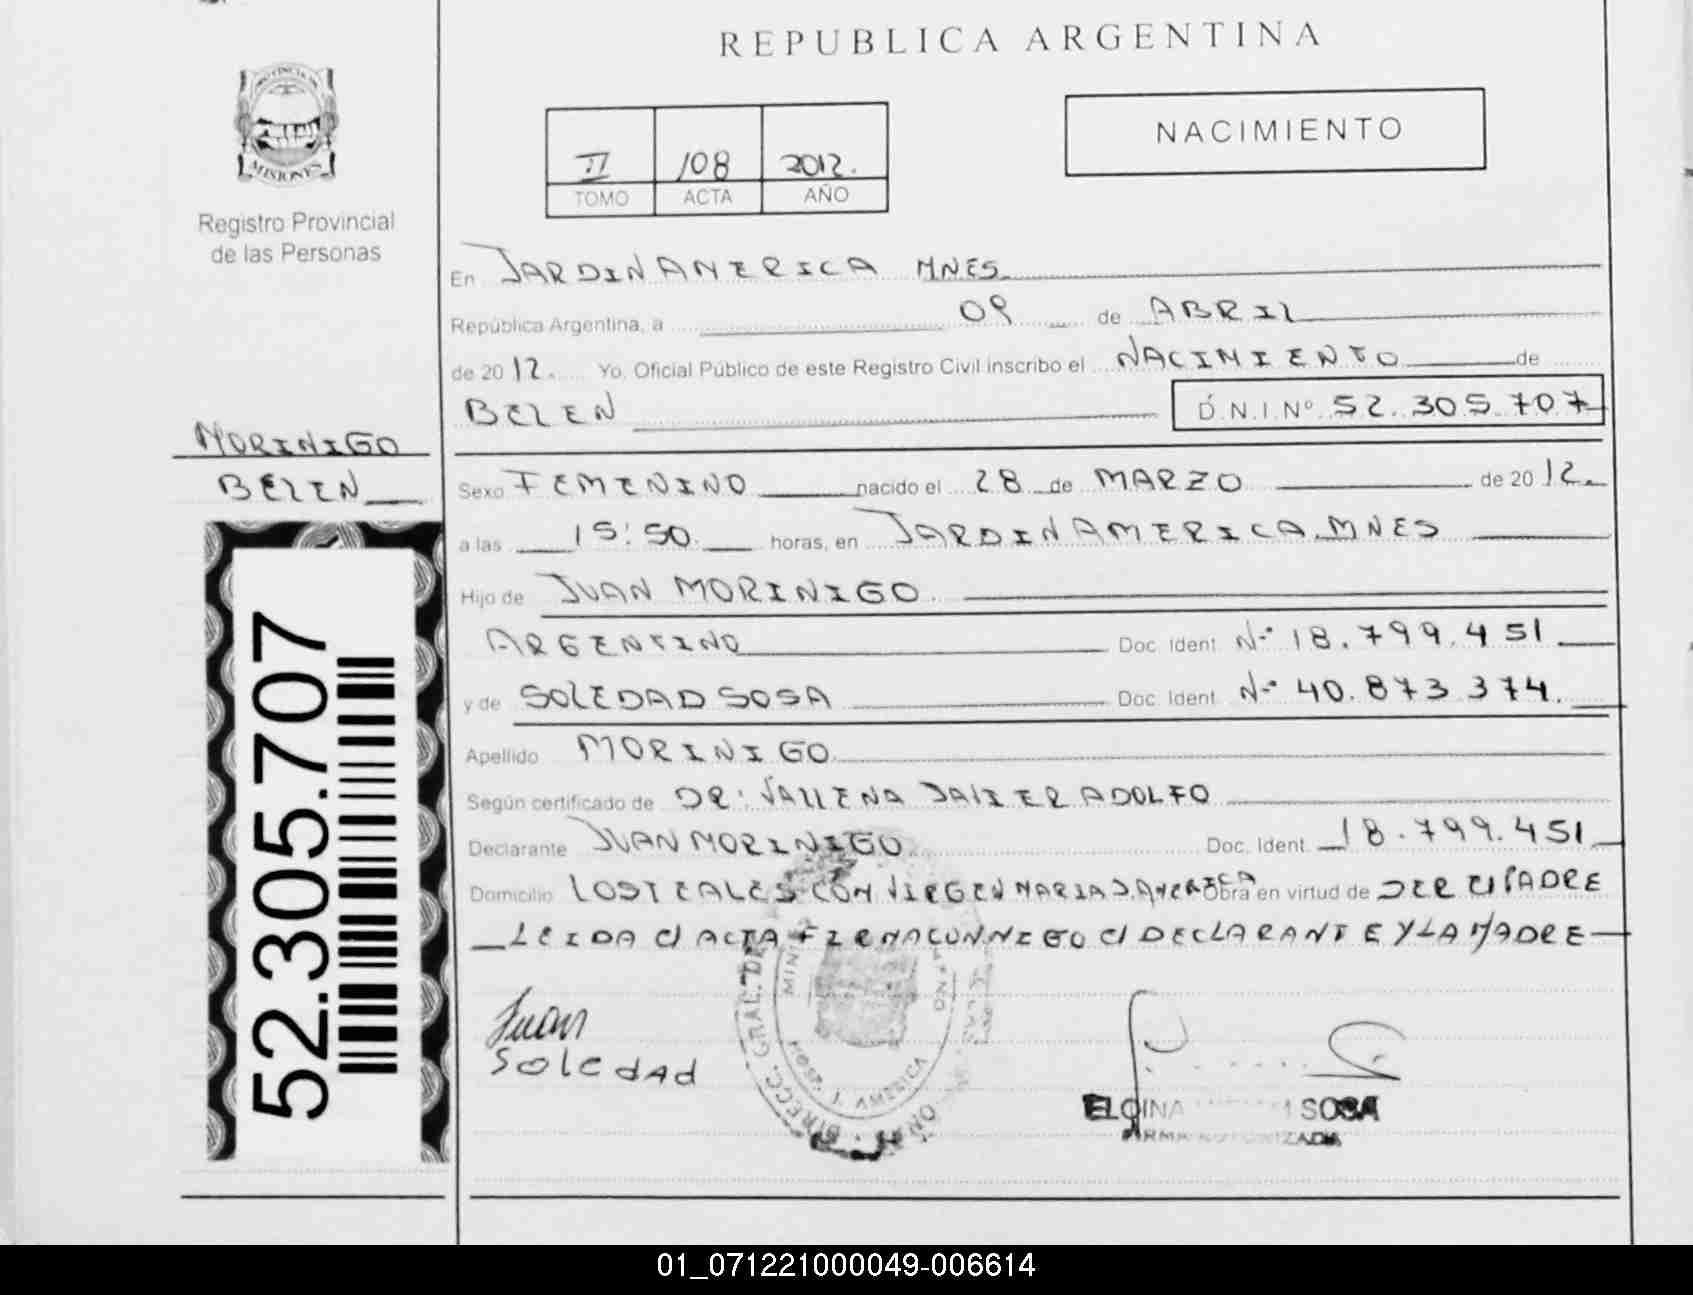 REPUBLICA ARGENTINA
PROVINCIA DE
MISIONES
Registro Provincial
de las Personas
II 108 2012.
TOMO ACTA AÑO
NACIMIENTO
En JARDIN AMERICA MNES.
República Argentina, a 09 de ABRIL
de 2012. Yo, Oficial Público de este Registro Civil inscribo el NACIMIENTO de
BELEN D.N.I.Nº 52.305.707
MORINIGO
BELEN
52.305.707
Sexo FEMENINO nacido el 28 de MARZO de 2012.
a las 15:50. horas, en JARDIN AMERICA. MNES
Hijo de JUAN MORINIGO
ARGENTINO Doc. Ident. Nº 18.799.451
y de SOLEDAD SOSA Doc. Ident. Nº 40.873.374.
Apellido MORINIGO
Según certificado de DR: VALLENA JAVIER ADOLFO
Declarante JUAN MORINIGO Doc. Ident. 18.799.451
Domicilio LOS TEALES CON VIRGEN MARIA J. AMERICA Obra en virtud de SER EL PADRE
LEIDA EL ACTA FIRMA CONMIGO EL DECLARANTE Y LA MADRE
Juan
Soledad
DIRECC. GRAL. DE
HOSP. J. AMERICA
SOSA
FIRMA AUTORIZADA
01_071221000049-006614